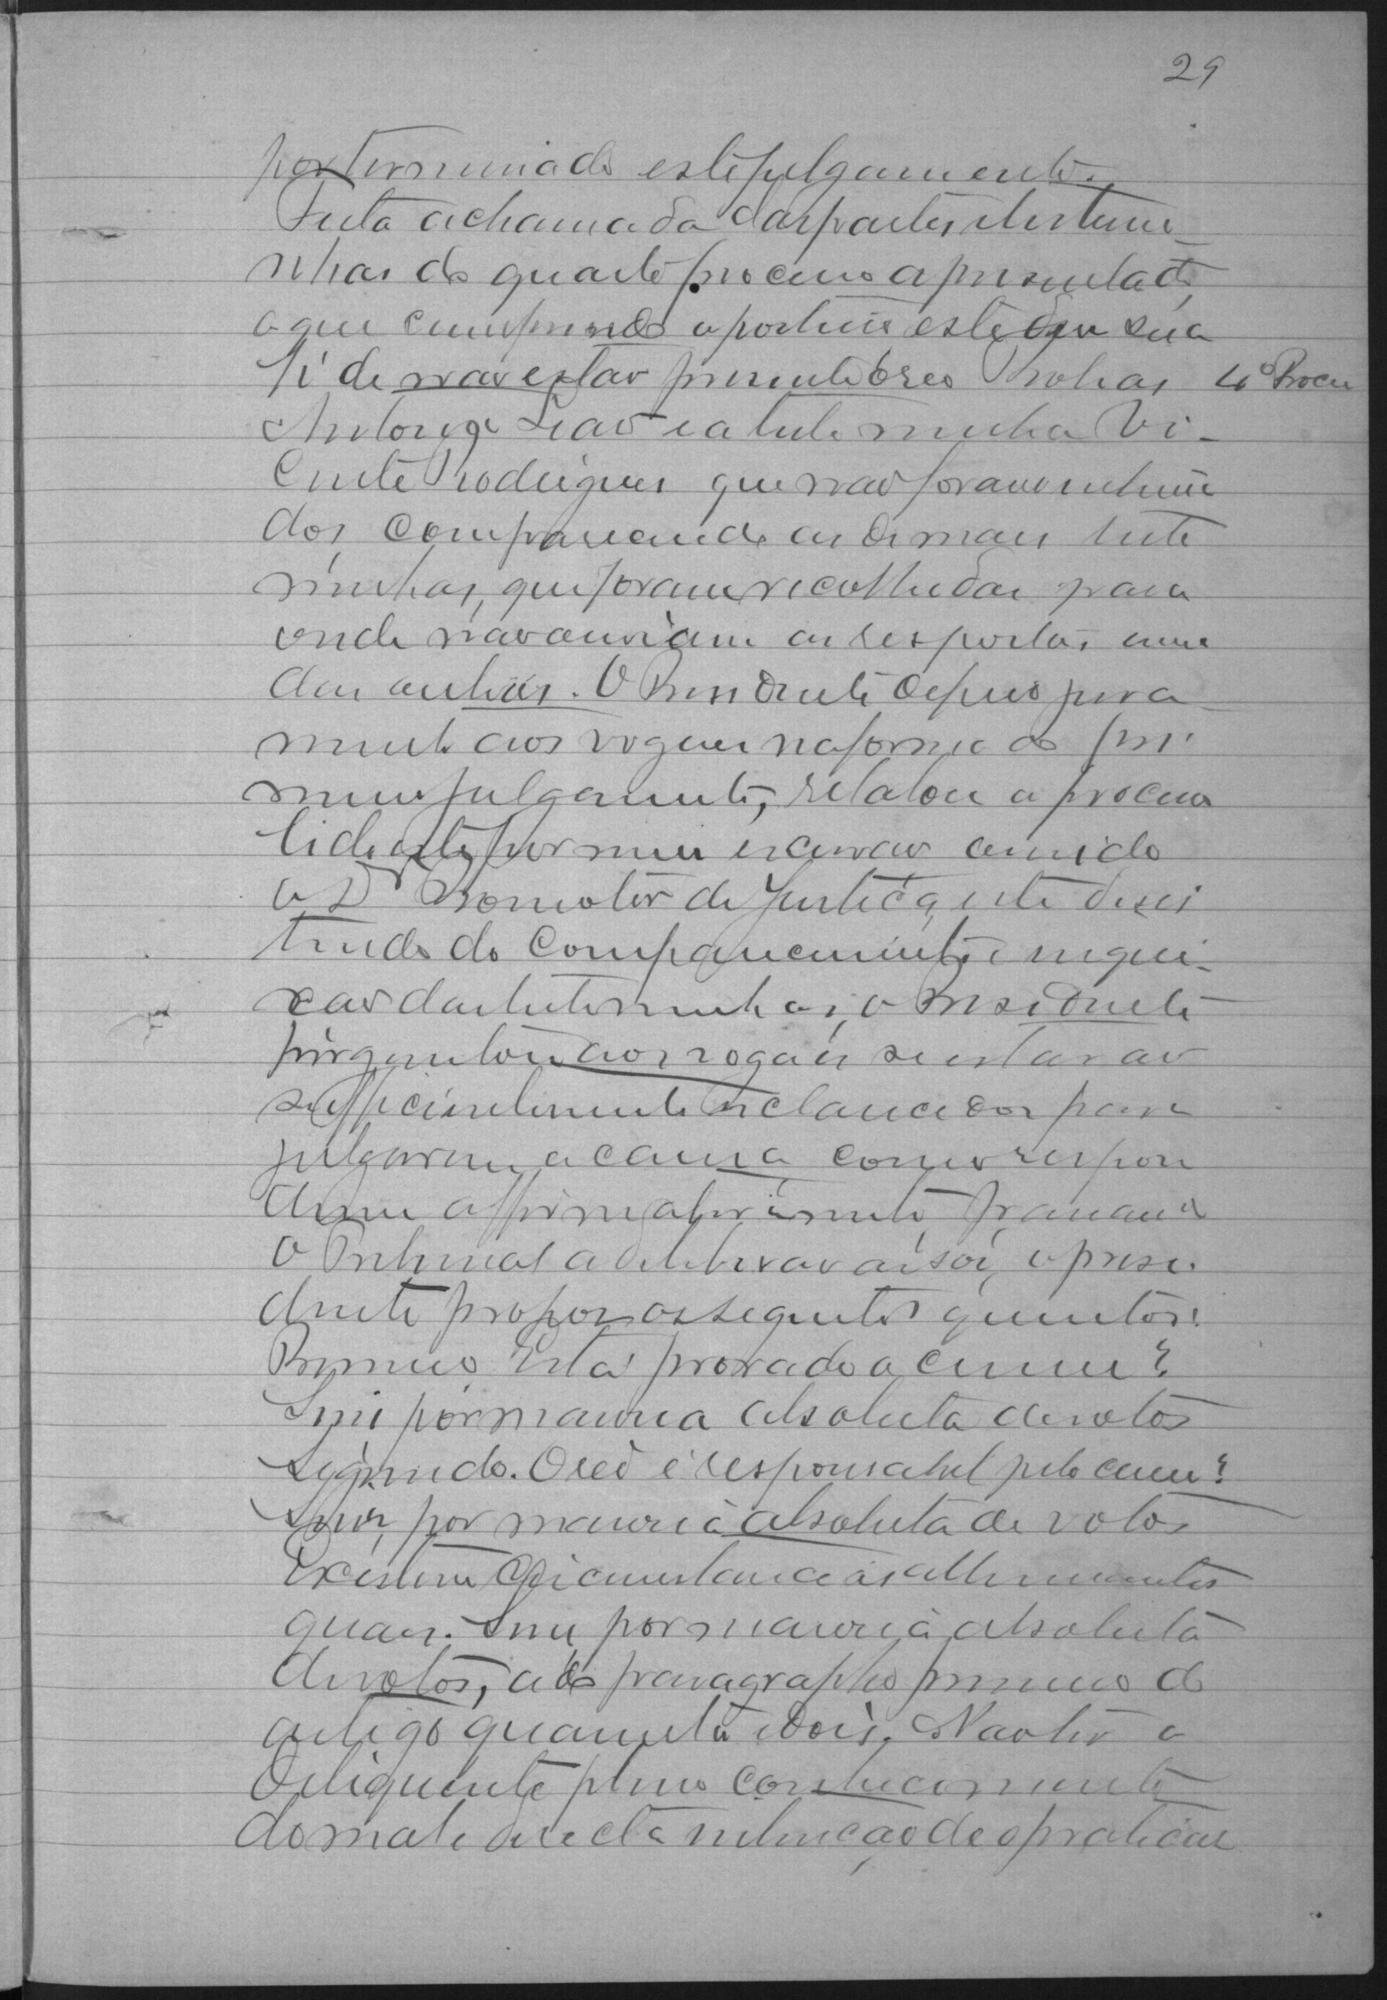 29
por terminado este julgamento.
Feita a chamada das partes e testemu
nhas do quarto processo apresentado,
a que cumprindo o porteiro este deu sua
fé de não estar presente o reo
4º Proces
Antonio Leão e a testemunha Vi-
cente Rodrigues que não foram intima
dos comparecendo as demais teste
munhas, que foram recolhidas para
onde não ouviam as respostas uma
das outras. O Presidente depois jura
mento aos vogaes na forma do pri
meiro julgamento, relatou o processo
lido este por mim escrivão ouvido
o Dr Promotor de Justiça, este desis
tindo do comparecimento e inqui-
rição das testemunhas, o Presidente
perguntou aos vogaes se estavão
sufficientemente esclarecidos para
julgarem a causa, como respon
deram affirmativamente, passando
o Tribunal a deliberar a sós, o presi
dente propoz os seguintes quesitos:
Primeiro Está provado o crime?
Sim por maioria absoluta de votos
Segundo. O reo é responsavel pelo crime?
Sim, por maioria absoluta de votos
Existem circumstancias attenuantes
quaes. Sim por maioria absoluta
de votos, a do paragrapho primeiro do
artigo quarenta e dois. Não ter o
deliquente pleno conhecimento
do mal e directa intenção de o praticar